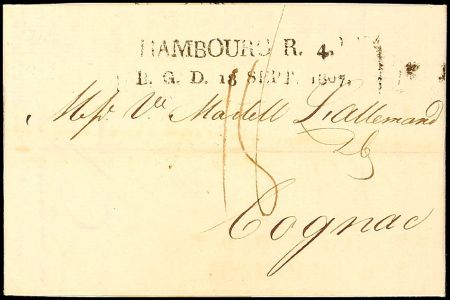 HAMBOURG R. 4.
B. G. D. 18 SEPT. 1807.
Mr. Ve. Martell Lallemand
18
Cognac